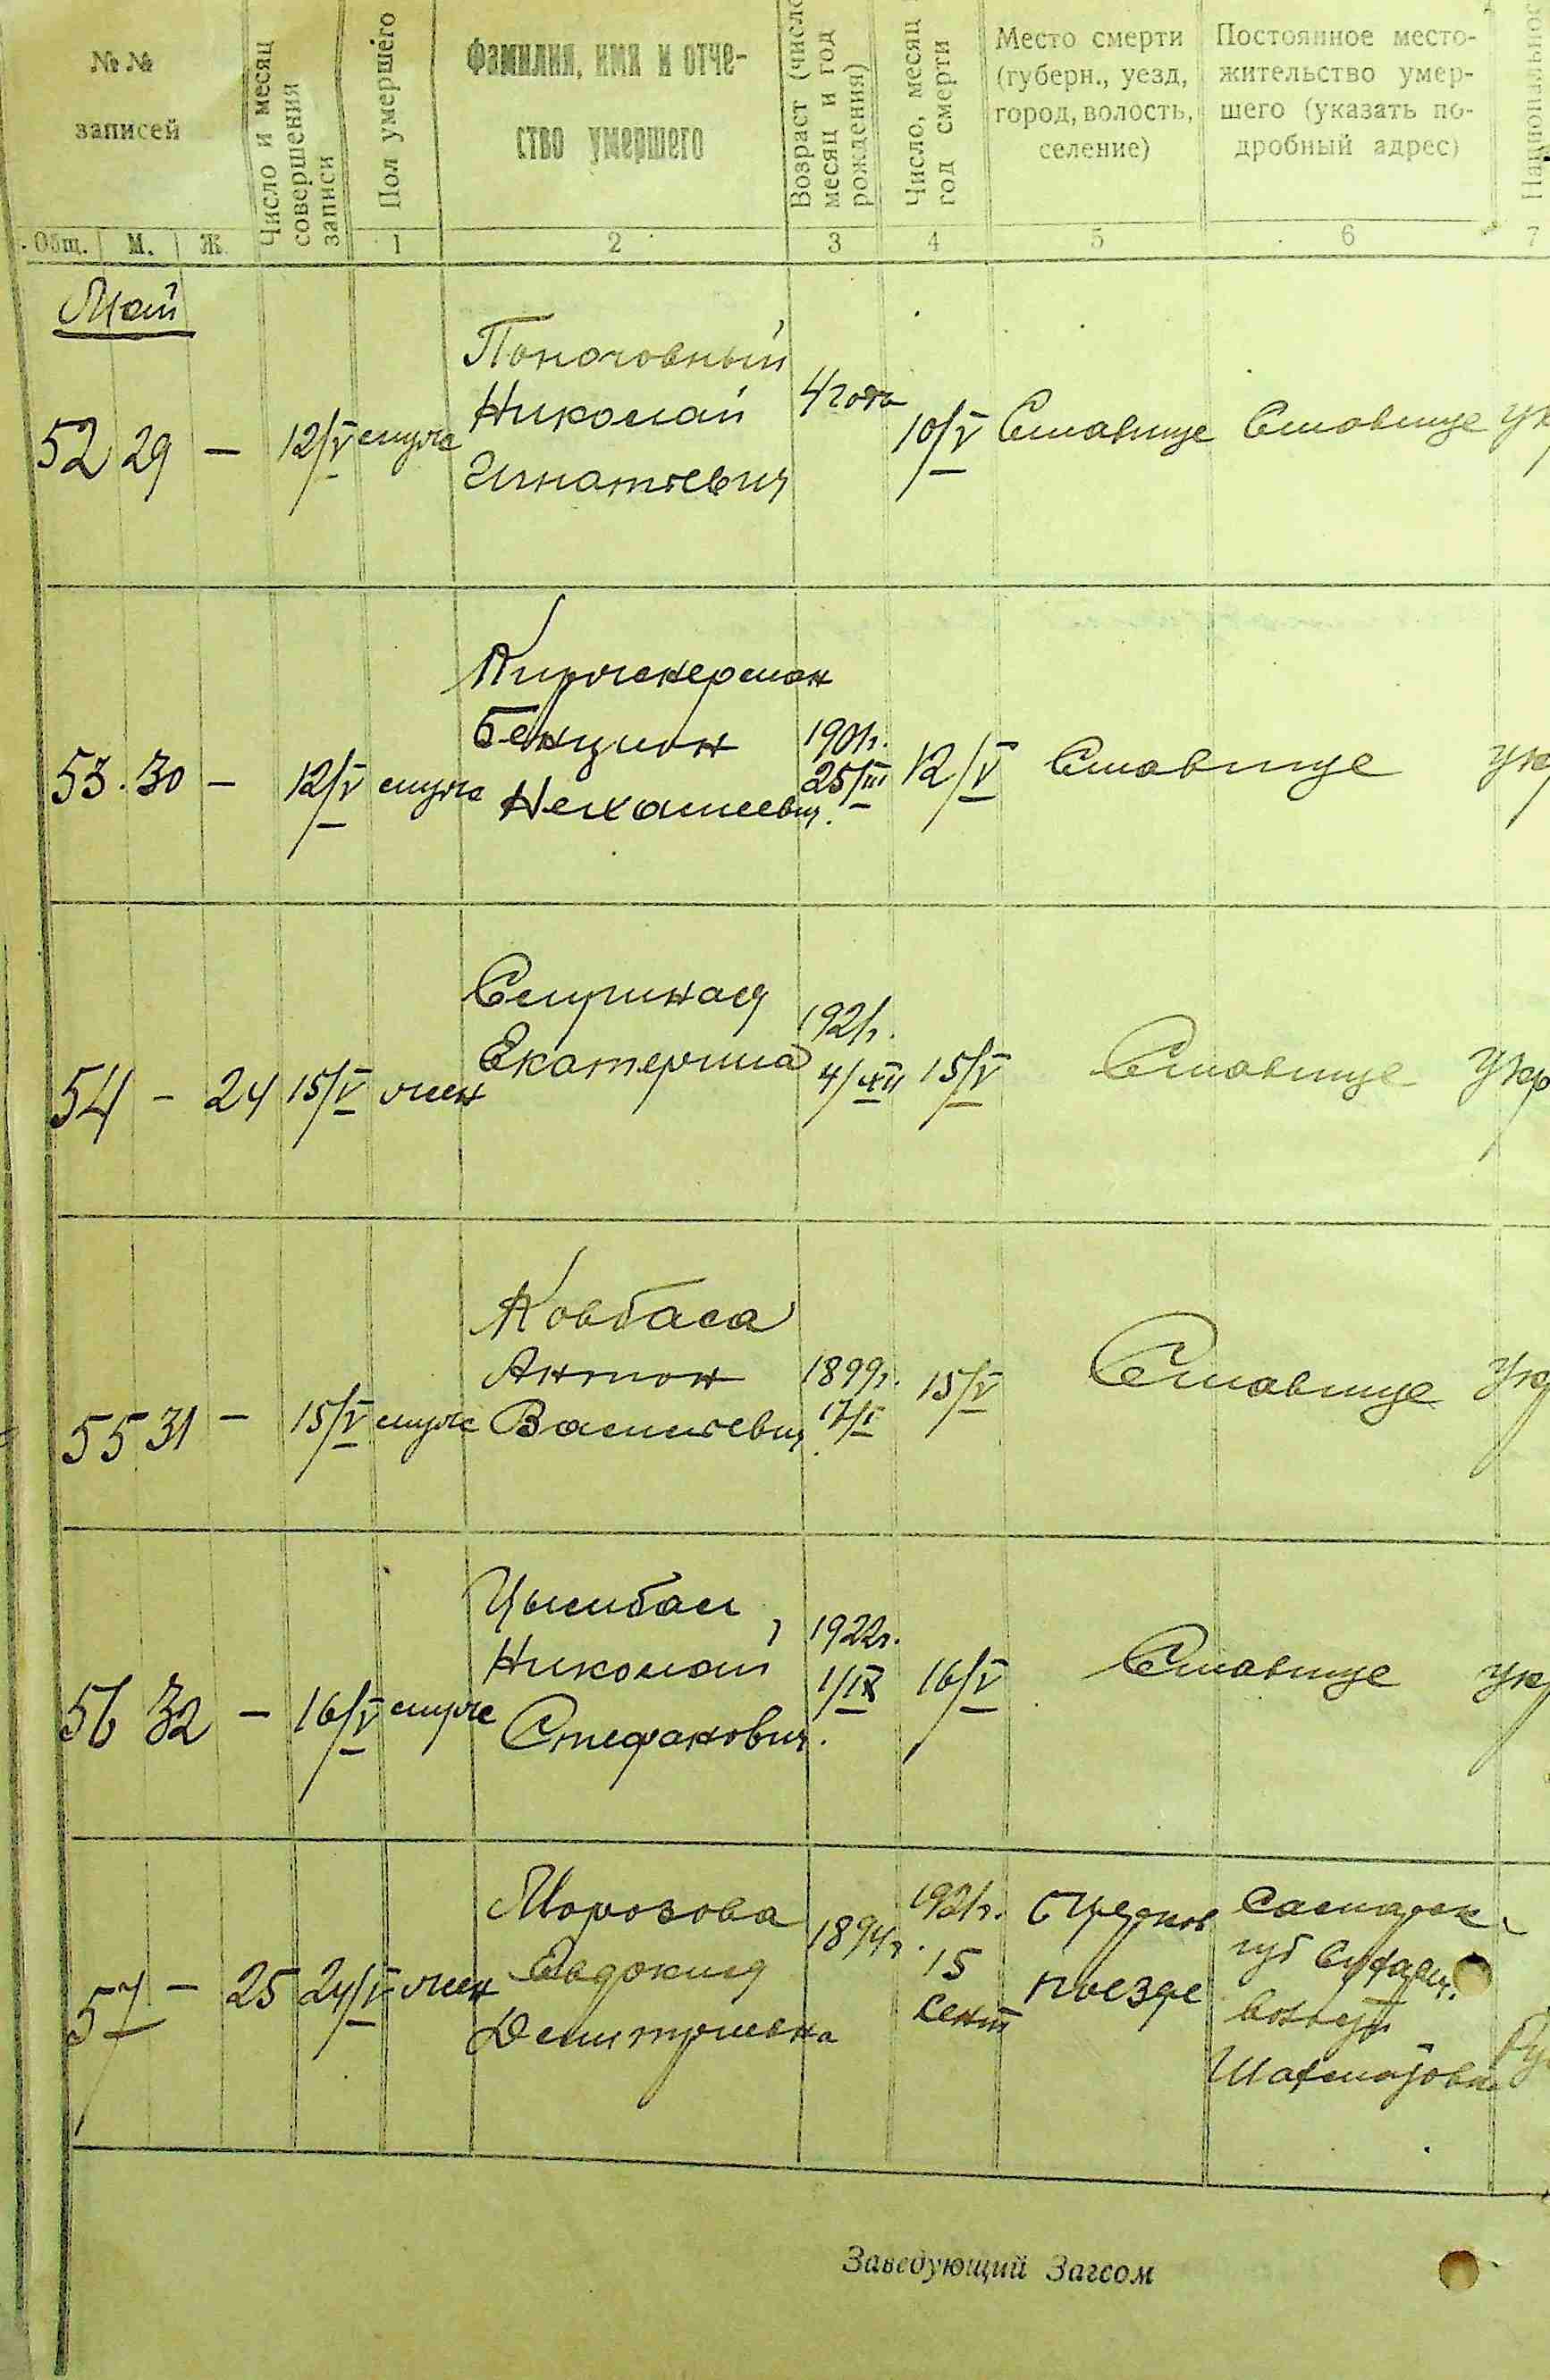 № №
записей
Число и месяц
совершения
записи
Пол умершего
Фамилия, имя и отче-
ство умершего
Возраст (число
месяц и год
рождения)
Число, месяц
год смерти
Место смерти
(губерн., уезд,
город, волость,
селение)
Постоянное место-
жительство умер-
шего (указать по-
дробный адрес)
Национальнос
Общ. М. Ж. 1 2 3 4 5 6 7
Май
Поночовный
Николай
Игнатьевич
52 29 — 12/V муж 4 года 10/V Ставище Ставище ук
Бенцион
Нехамиевич
53. 30 — 12/V муж 1901г. 25/III 12/V Ставище укр
Екатерина
54 — 24 15/V жен 1921г. 4/XII 15/V Ставище укр
Ковбаса
Антон
Васильевич
55 31 — 15/V муж 1899г. 17/I 15/V Ставище укр
Цымбал
Николай
Стефанович.
56 32 — 16/V муж 1922г. 1/IX 16/V Ставище укр
Морозова
Евдокия
Дмитриевна
57 — 25 24/V жен 1894г. 1921г.
15
сент
поезде
Самарск
губ
Заведующий Загсом